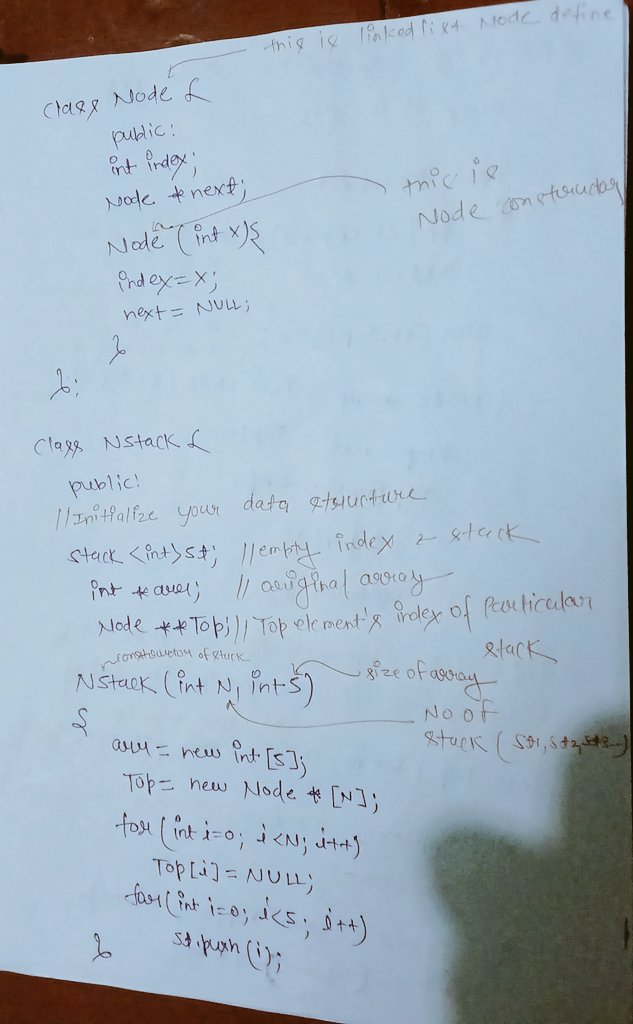 this is linked list Node define
class Node {
public:
int index;
Node *next;
this is
Node constructor
Node (int x){
index=x;
next= NULL;
}
};
class NStack {
public:
//Initialize your data structure
stack <int> st; //empty index 2 stack
int *arr; // original array
Node **Top; // Top element's index of Particular
stack
constructor of stack
NStack (int N, int S)
size of array
NO OF
stack ( st1, st2, st3 --)
{
arr = new int [S];
Top= new Node *[N];
for (int i=0; i<N; i++)
Top[i] = NULL;
for (int i=0; i<S; i++)
st.push(i);
}